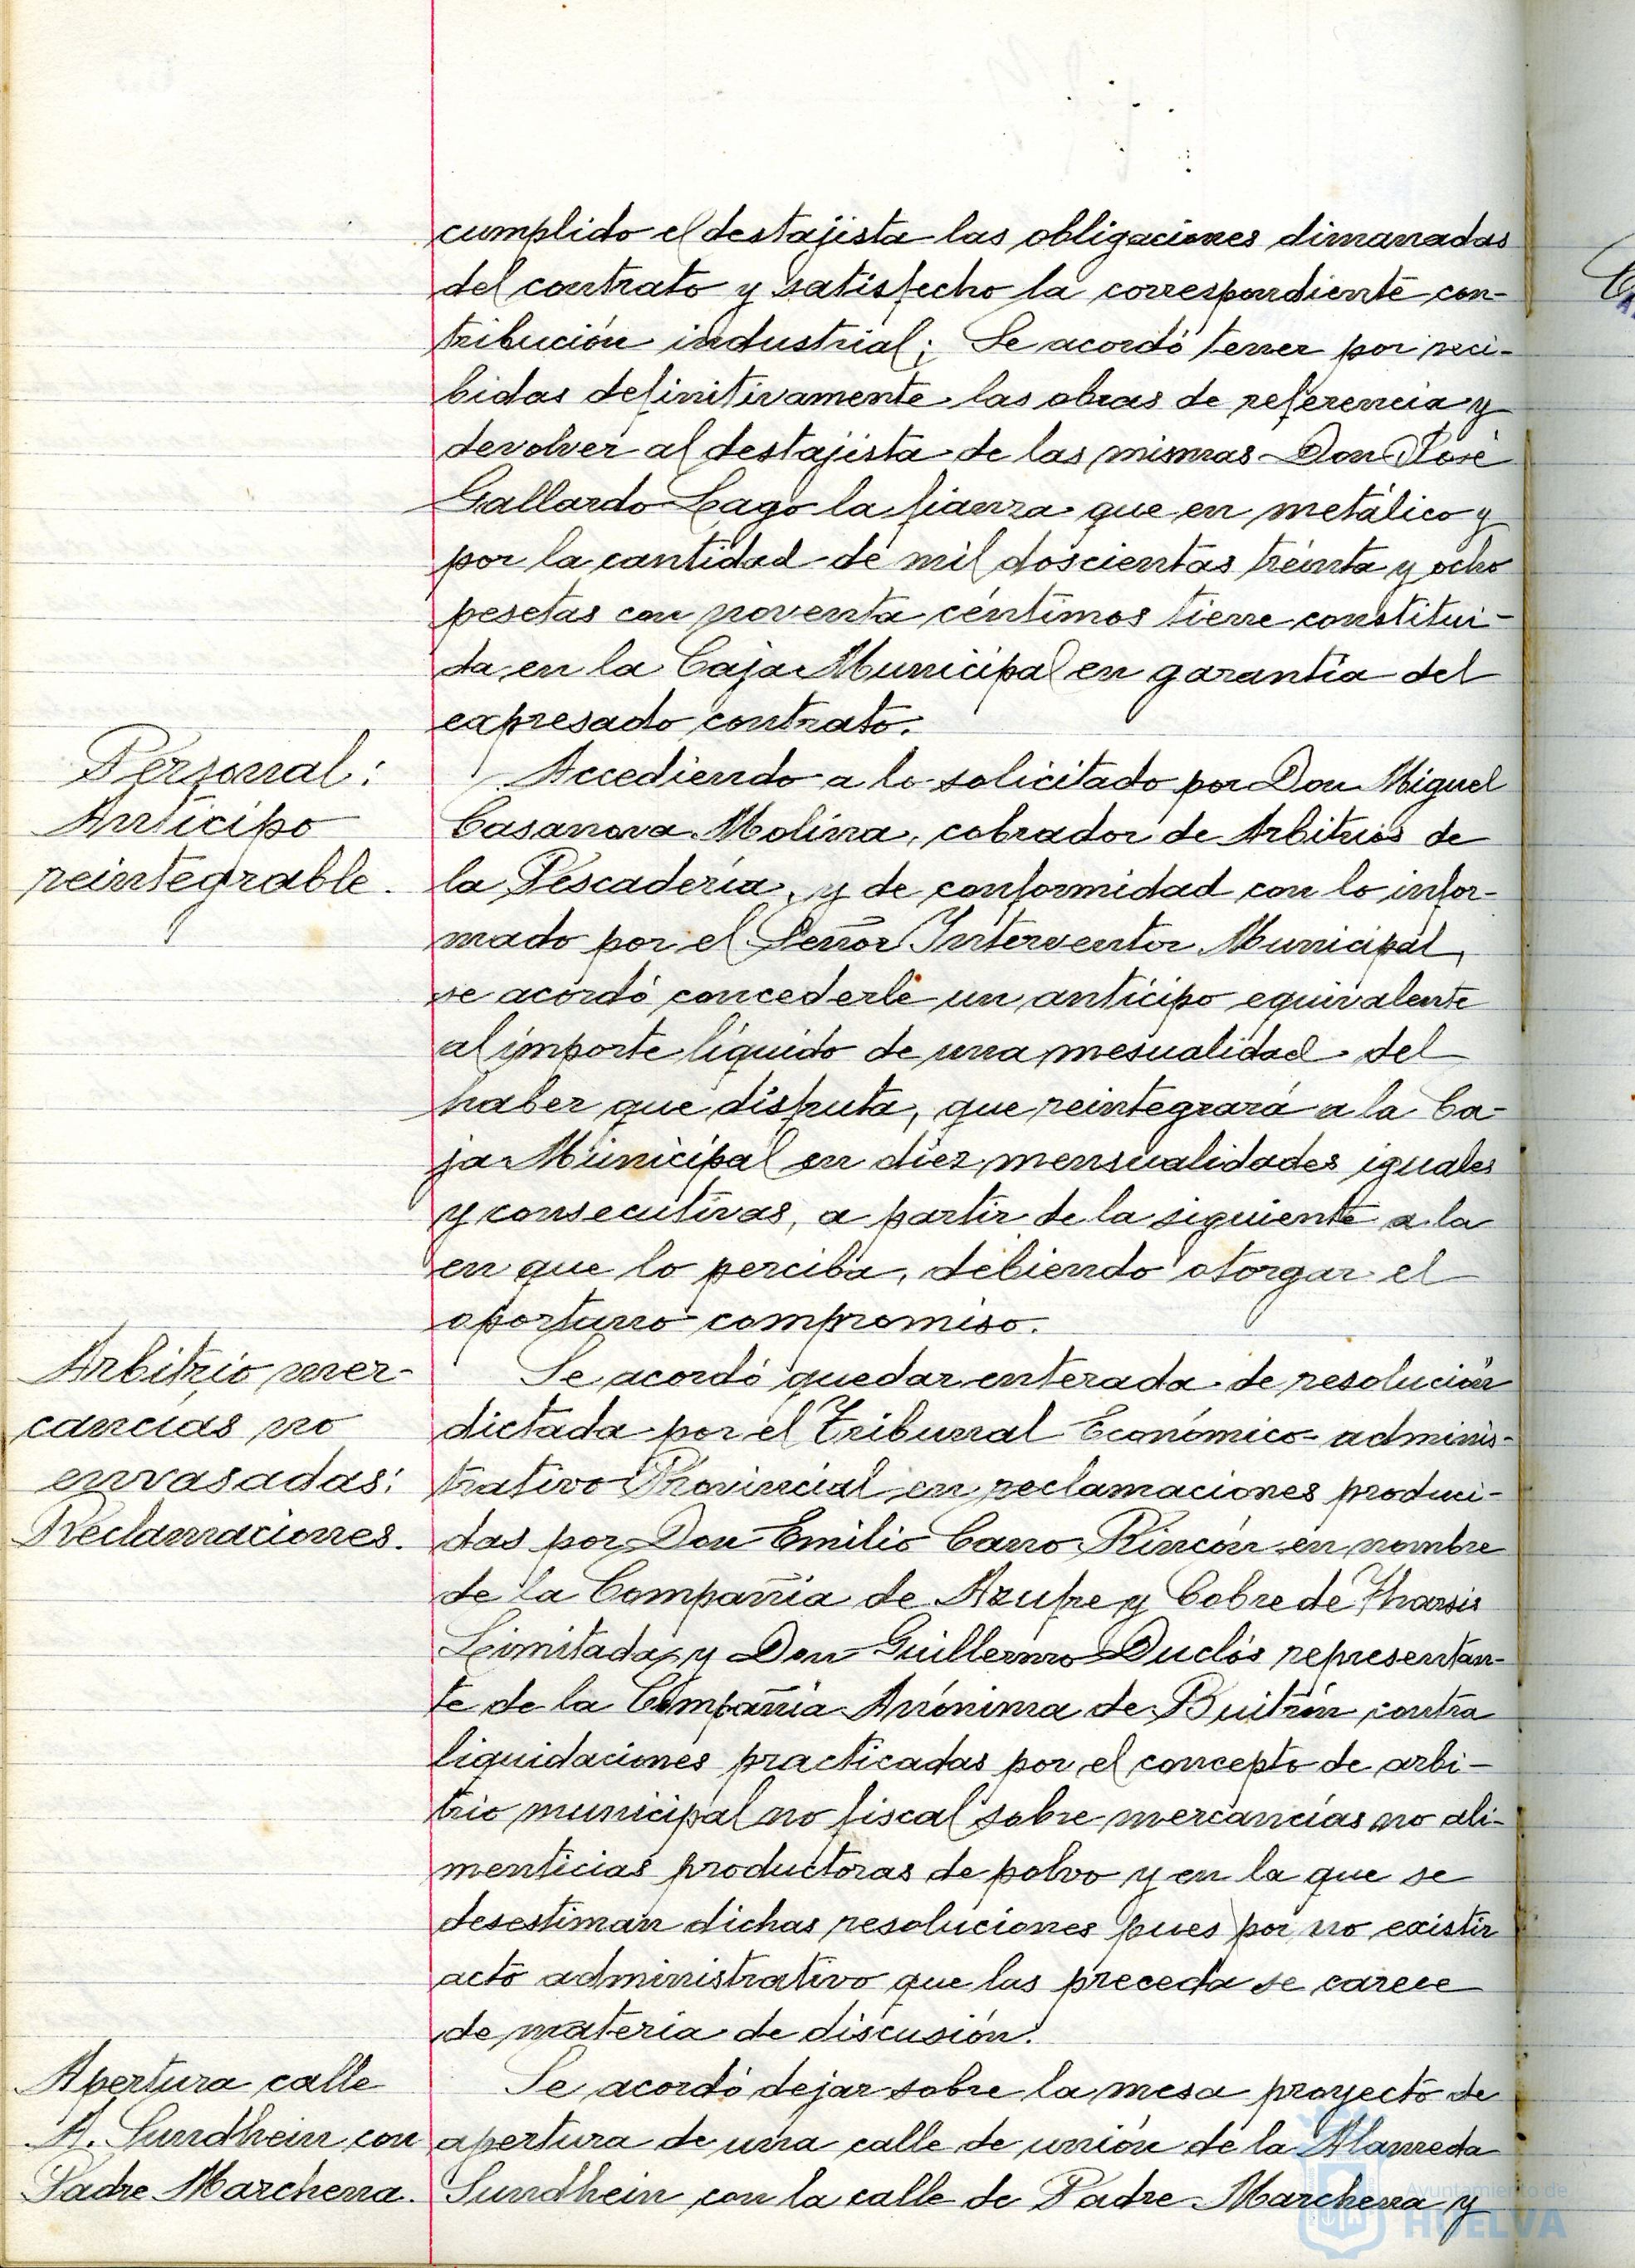 cumplido el destajista las obligaciones dimanadas
del contrato y satisfecho la correspondiente con-
tribución industrial; Se acordó tener por reci-
bidas definitivamente las obras de referencia y
devolver al destajista de las mismas Don José
Gallardo Lago la fianza que en metálico y
por la cantidad de mil doscientas treinta y ocho
pesetas con noventa céntimos tiene constitui-
da en la Caja Municipal en garantía del
expresado contrato.
Personal:
Anticipo
reintegrable.
Accediendo a lo solicitado por Don Miguel
Casanova Molina, cobrador de Arbitrios de
la Pescadería, y de conformidad con lo infor-
mado por el Señor Interventor Municipal,
se acordó concederle un anticipo equivalente
al importe líquido de una mesualidad del
haber que disfruta, que reintegrará a la Ca-
ja Municipal en diez mensualidades iguales
y consecutivas, a partir de la siguiente a la
en que lo perciba, debiendo otorgar el
oportuno compromiso.
Arbitrio mer-
cancías no
envasadas:
Reclamaciones.
Se acordó quedar enterada de resolución
dictada por el Tribunal Económico-adminis-
trativo Provincial en reclamaciones produci-
das por Don Emilio Cano Rincón en nombre
de la Compañía de Azufre y Cobre de Tharsis
Limitada, y Don Guillermo Duclós representan-
te de la Compañía Anónima de Buitrón contra
liquidaciones practicadas por el concepto de arbi-
trio municipal no fiscal sobre mercancías no ali-
menticias productoras de polvo y en la que se
desestiman dichas resoluciones pues por no existir
acto administrativo que las preceda se carece
de materia de discusión.
Apertura calle
A. Sundhein con
Padre Marchena.
Se acordó dejar sobre la mesa proyecto de
apertura de una calle de unión de la Alameda
Sundhein con la calle de Padre Marchena y
Ayuntamiento de
HUELVA